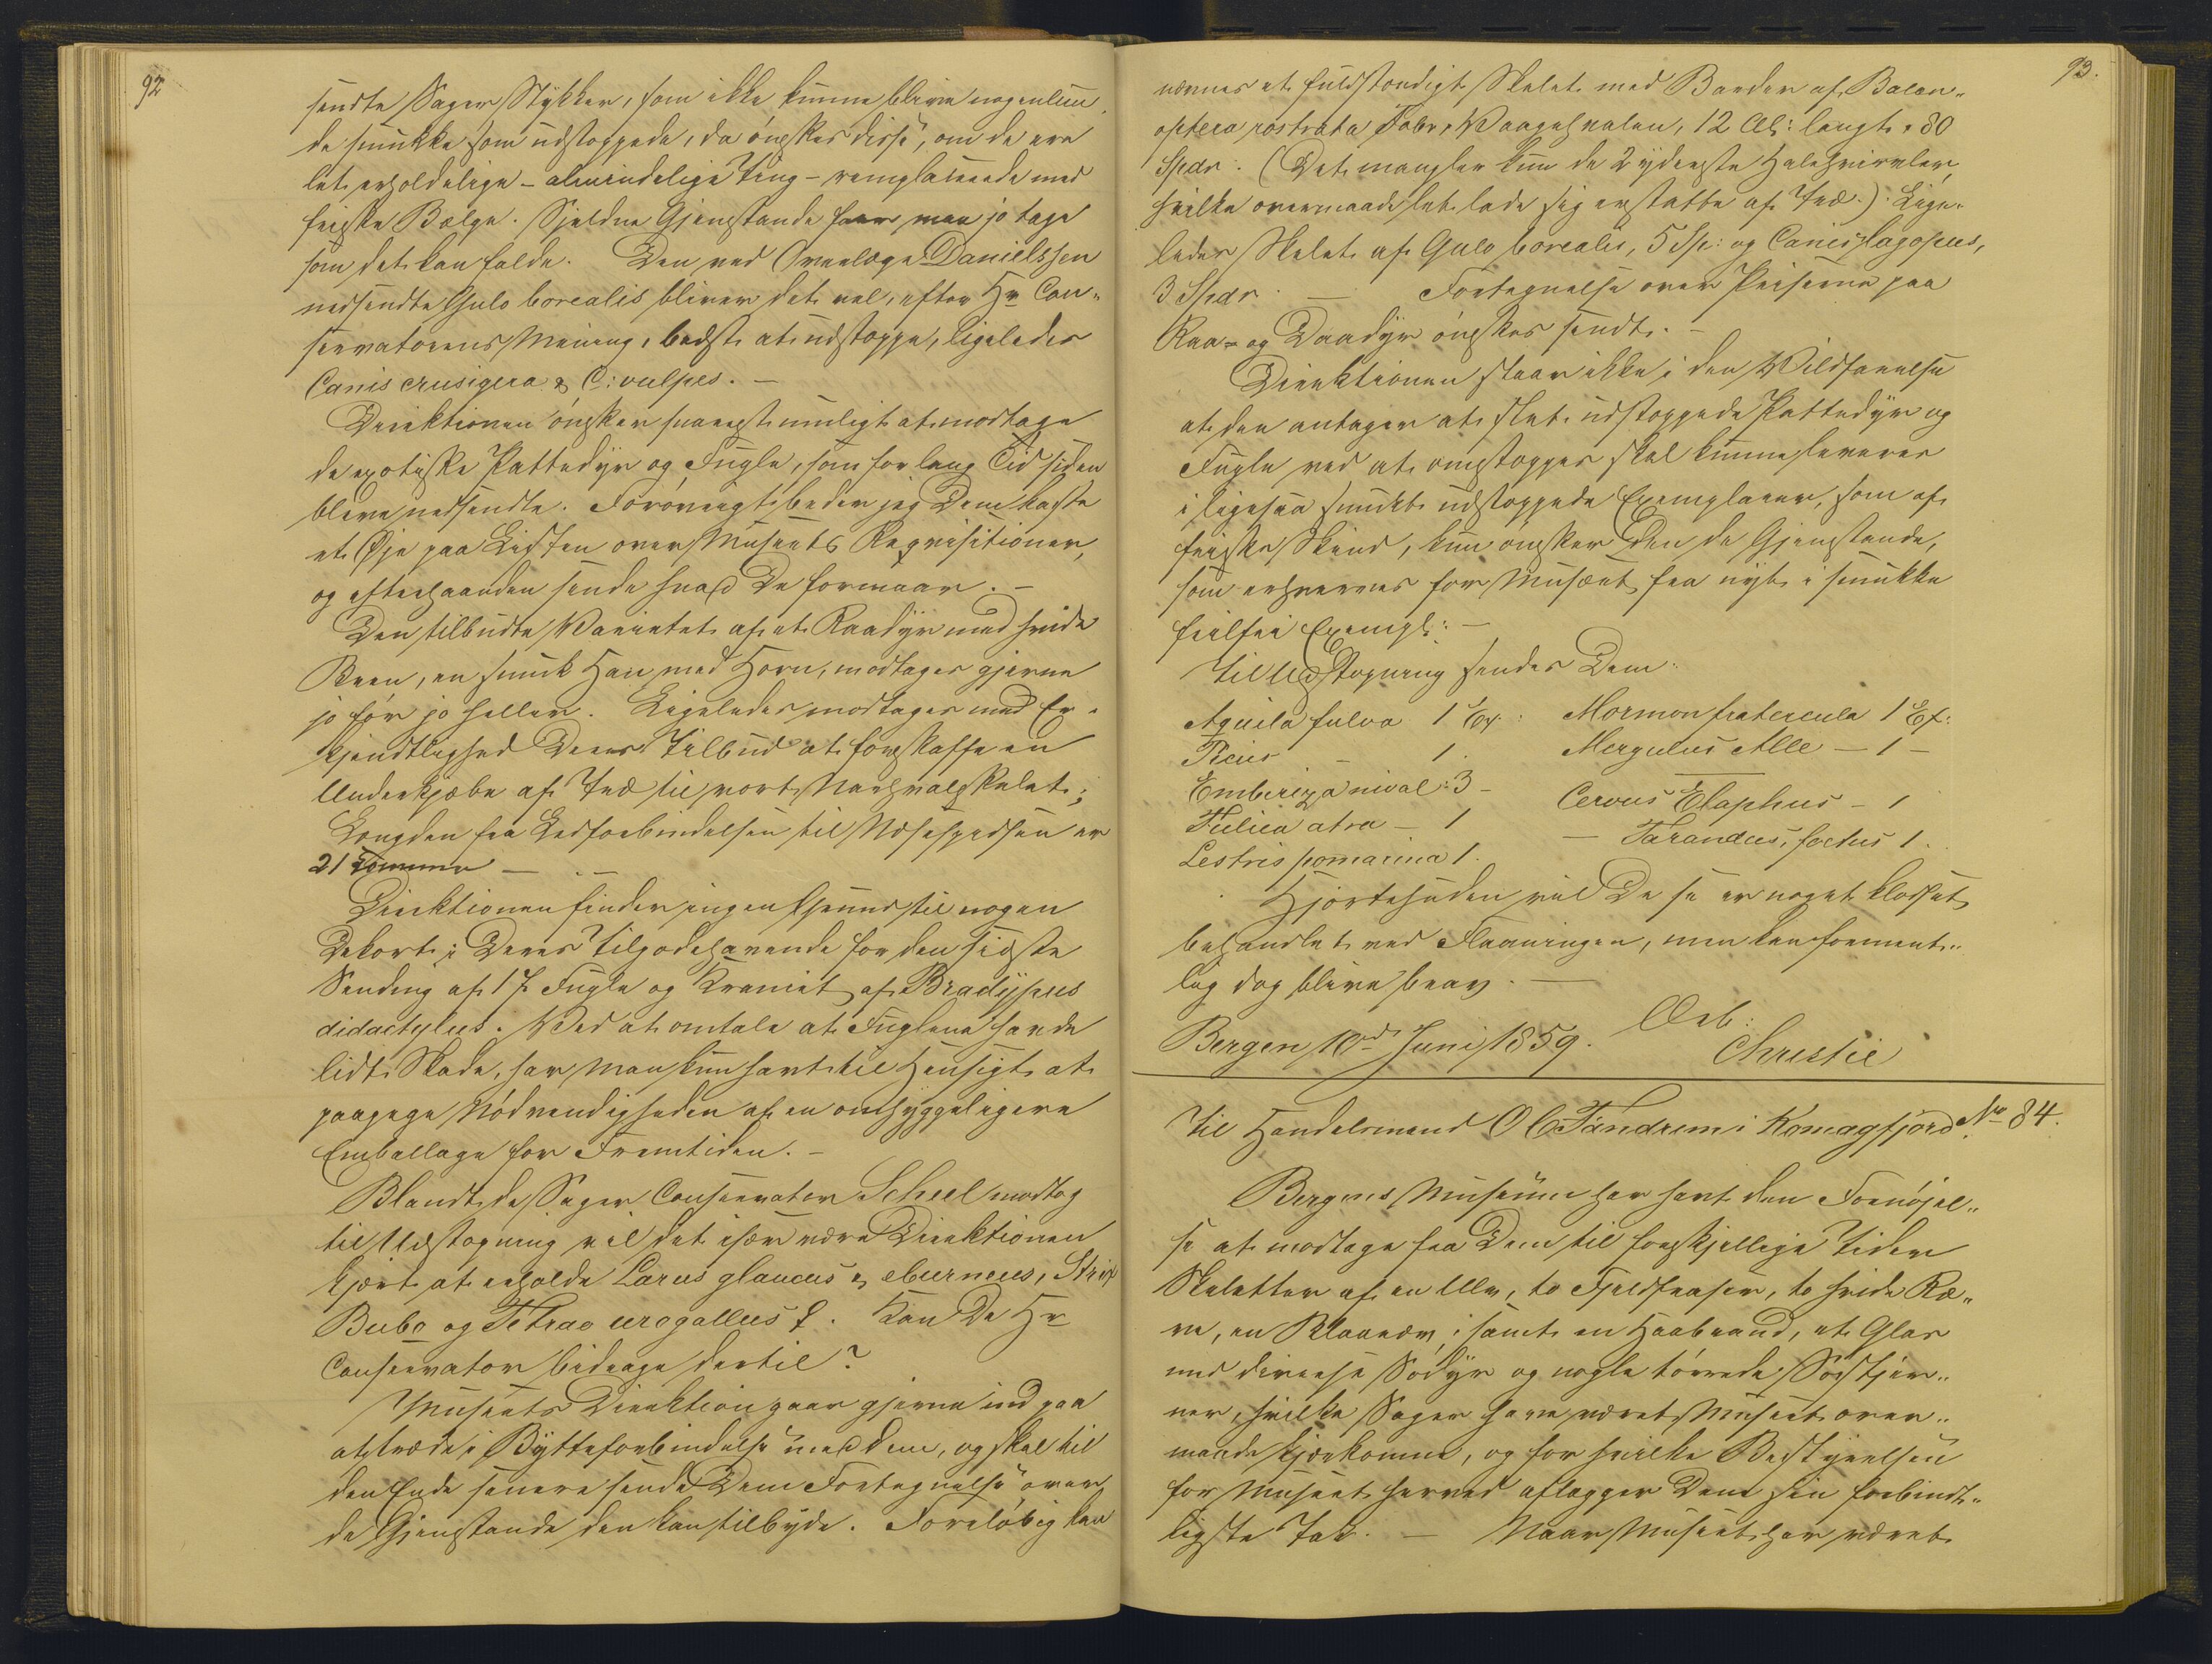 92
sendte Sager Stykker, som ikke kunne blive nogenlun„
de smukke som udstoppede, da ønskes disse, om de ere
let erholdelige – almindelige Ting – remplacerede med
friske Bælge. Sjeldne Gjenstande faar man jo tage
som det kan falde. Den ved Overlæge Danielssen
nedsendte Gulo borealis bliver det vel, efter Hr Con„
servatorens Mening, bedst at udstoppe, ligeledes
Canis crusigera & C: vulpes. –
Direktionen ønsker snarest muligt at modtage
de exotiske Pattedyr og Fugle, som for lang Tid siden
bleve nedsendte. Forøvrigt beder jeg Dem kaste
et Øje paa Listen over Museets Reqvisitioner,
og efterhaanden sende hvad De formaar. –
Den tilbudte Varietet af et Raadyr med hvide
Been, en smuk Han med Horn, modtages gjerne
jo før jo heller. Ligeledes modtages med Er„
kjendtlighed Deres Tilbud at forskaffe en
Underkjæbe af Træ til vort Narhvalskelet;
Længden fra Ledforbindelsen til Næsespidsen er
21 Tommer –
Direktionen finder ingen Grund til nogen
Dekort i Deres Tilgodehavende for den sidste
Sending af 17 Fugle og Kraniet af Bradypus
didactylus. Ved at omtale at Fuglene havde
lidt Skade, har man kun havt til Hensigt at
paapege Nødvendigheden af en omhyggeligere
Emballage for Fremtiden. –
Blandt de Sager Conservator Scheel modtog
til Udstopning vil det især være Direktionen
kjært at erholde Larus glaucus & eburneus, Strix
Bubo og Tetrao urogallus ♀. Kan De Hr
Conservator bidrage dertil?
Museets Direktion gaar gjerne ind paa
at træde i Bytteforbindelse med dem, og skal til
den Ende senere sende Dem Fortegnelse over
de Gjenstande den kan tilbyde. Foreløbig kan
93.
nævnes et fuldstændigt Skelet med Barder af Balæn„
optera rostrata Fabr, Vaagehvalen, 12 Al: langt, 80
Spdr. (Det mangler kun de 2 yderste Halehvirvler,
hvilke overmaade let lade sig erstatte af Træ.) Lige„
ledes Skelet af Gulo borealis, 5 Sp: og Canis lagopus,
3 Spdr. — Fortegnelse over Priserne paa
Raa- og Daadyr ønskes sendt. –
Direktionen staar ikke i den Vildfarelse
at den antager at slet udstoppede Pattedyr og
Fugle ved at omstoppes skal kunne leveres
i ligesaa smukt udstoppede Exemplarer, som af
friske Skind, kun ønsker den de Gjenstande,
som erhverves for Museet fra nyt i smukke
feilfri Exempl: –
Til Udstopning sendes Dem:
Aquila fulva 1 Ex: Mormon fratercula 1 Ex:
Picus – 1. Mergulus Alle – 1 –
Emberiza nival: 3 – Cervus Elaphus – 1
Fulica atra – 1 – Tarandus, foetus 1.
Lestris pomarina 1.
Hjortehuden vil De se er noget klodset
behandlet ved Flaaningen, men kan forment„
lig dog blive brav. —
Bergen 10de Juni 1859. Ærb:
Christie
Til Handelsmand O C Fandrem i Komagfjord No 84.
Bergens Museum har havt den Fornøjel„
se at modtage fra Dem til forskjellige Tider
Skeletter af en Ulv, to Fjeldfrasser, to hvide Ræ„
ve, en Blaaræv, samt en Haabrand, et Glas
med diverse Sødyr og nogle tørrede Søstjer„
ner, hvilke Sager have været Museet over„
maade kjærkomne, og for hvilke Bestyrelsen
for Museet herved aflægger Dem sin forbindt„
ligste Tak. — Naar Museet har været